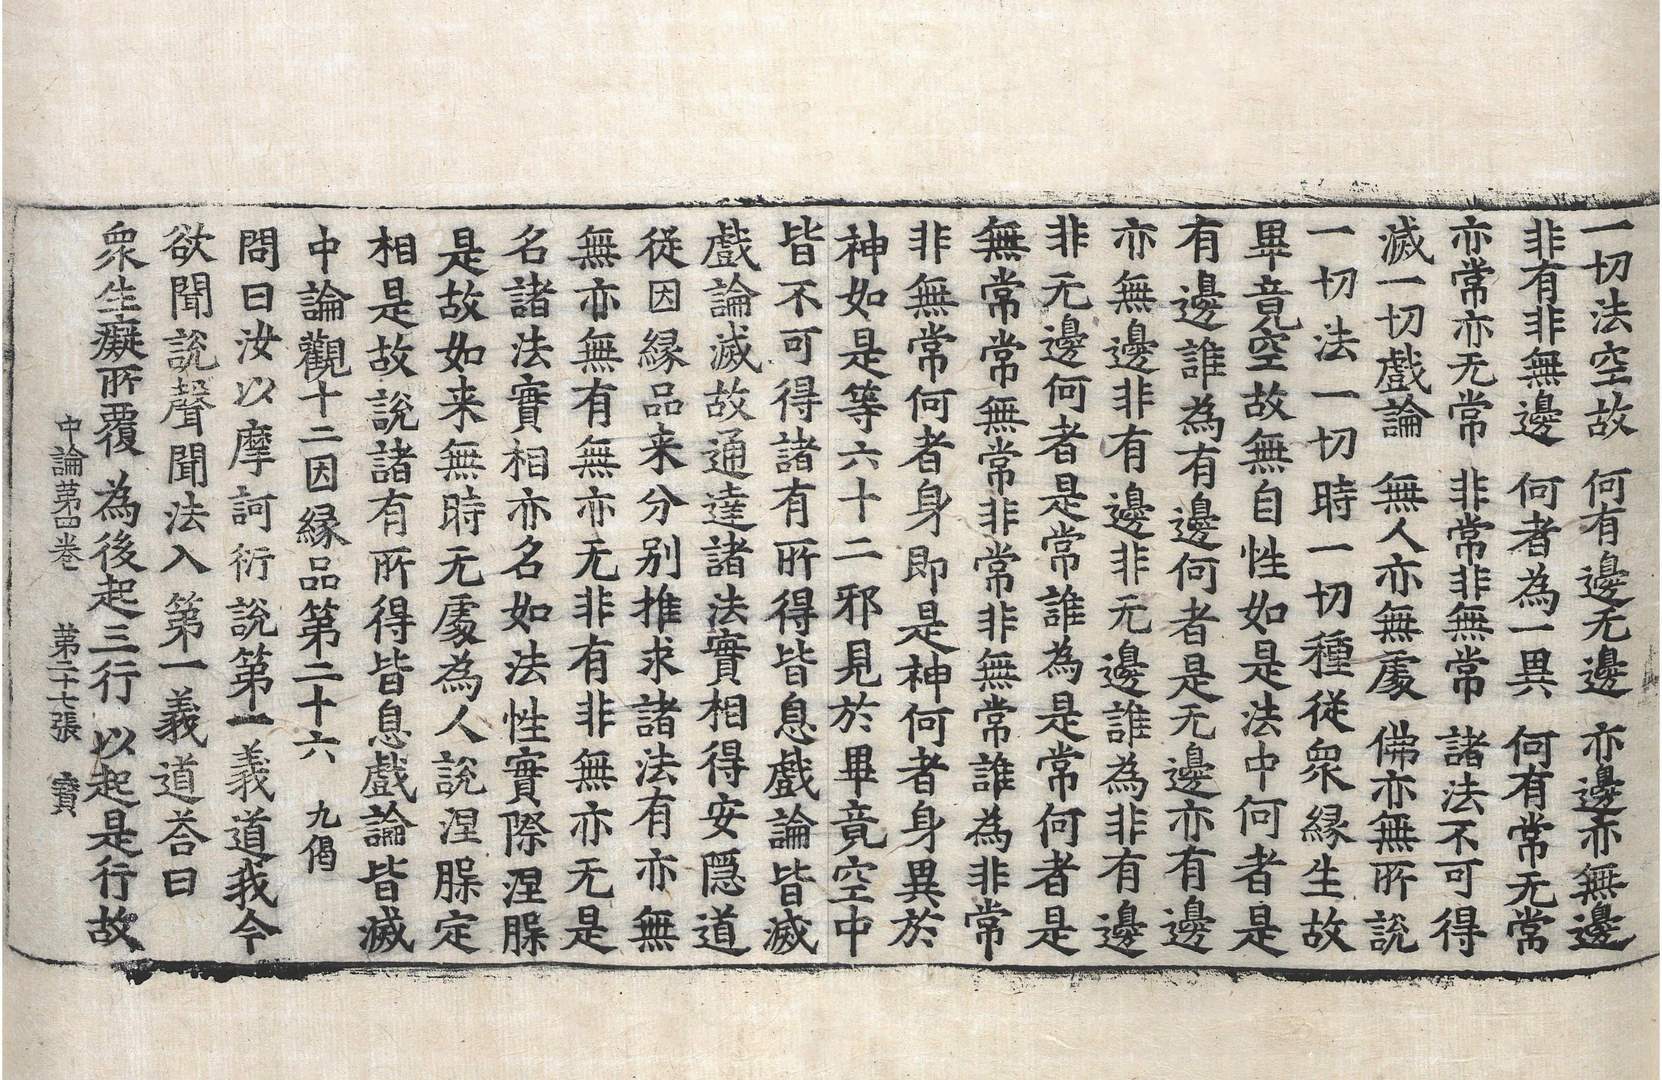 一切法空故 何有邊无邊 亦邊亦無邊
非有非無邊 何者為一異 何有常无常
亦常亦无常 非常非無常 諸法不可得
滅一切戲論 無人亦無處 佛亦無所說
一切法一切時一切種従衆縁生故
畢竟空故無自性如是法中何者是
有邊誰為有邊何者是无邊亦有邊
亦無邊非有邊非无邊誰為非有邊
非无邊何者是常誰為是常何者是
無常常無常非常非無常誰為非常
非無常何者身即是神何者身異於
神如是等六十二邪見於畢竟空中
皆不可得諸有所得皆息戲論皆滅
戲論滅故通達諸法實相得安隱道
従因縁品来分别推求諸法有亦無
無亦無有無亦无非有非無亦无是
名諸法實相亦名如法性實際涅槃
是故如来無時无處為人說涅槃定
相是故說諸有所得皆息戲論皆滅
中論觀十二因縁品第二十六 九偈
問曰汝以摩訶衍說第一義道我今
欲聞說聲聞法入第一義道荅曰
衆生癡所覆 為後起三行 以起是行故
中論苐四卷 苐二十七張 寶